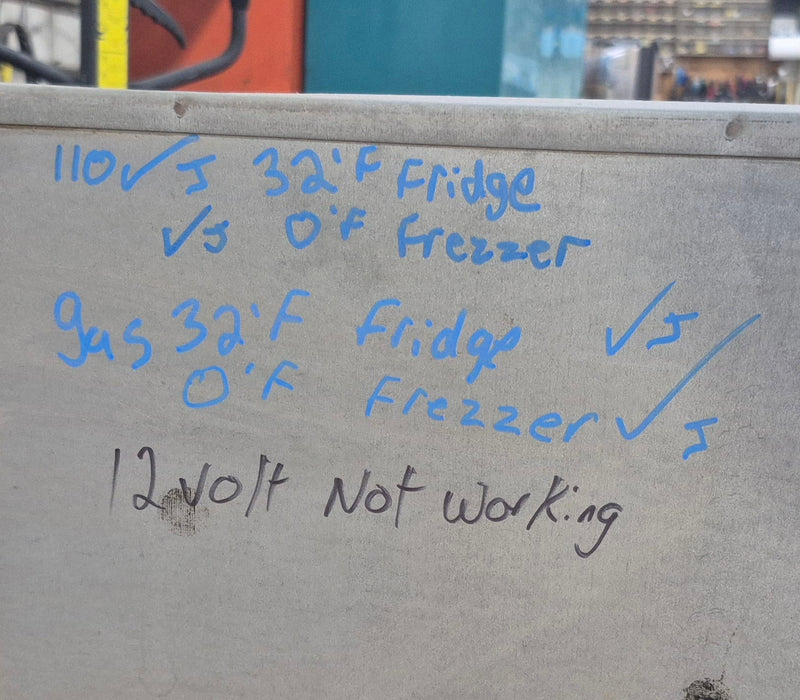 110✓J 32°F Fridge
✓J 0°F Frezzer
gas 32°F Fridge ✓J
0°F Frezzer ✓J
12 volt Not working